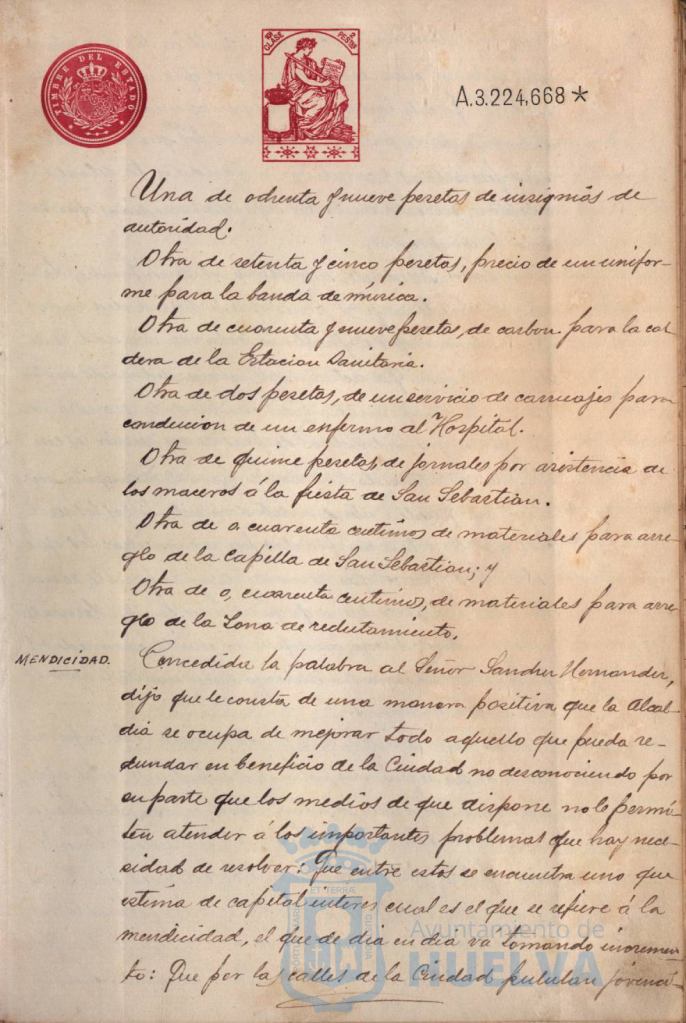 TIMBRE DEL ESTADO
10ª CLASE 2 PESTAS
A.3.224,668 *
Una de ochenta y nueve pesetas de insignias de
autoridad.
Otra de setenta y cinco pesetas, precio de un unifor-
me para la banda de música.
Otra de cuarenta y nueve pesetas, de carbon para la cal
dera de la Estacion Sanitaria.
Otra de dos pesetas, de un servicio de carruajes para
conducion de un enfermo al Hospital.
Otra de quince pesetas, de jornales por asistencia de
los maceros á la fiesta de San Sebastian.
Otra de o, cuarenta centimos de materiales para arre
glo de la Capilla de San Sebastian; y
Otra de o, cuarenta centimos, de materiales para arre
glo de la Zona de reclutamiento.
MENDICIDAD.
Concedida la palabra al Señor Sanchez Hernandez,
dijo que le consta de una manera positiva que la Alcal-
dia se ocupa de mejorar todo aquello que pueda re-
dundar en beneficio de la Ciudad no desconociendo por
su parte que los medios de que dispone no le permi-
ten atender á los importantes problemas que hay nece-
sidad de resolver: Que entre estos se encuentra uno que
estima de capital interes cual es el que se refiere á la
mendicidad, el que de dia en dia va tomando incremen-
to: Que por las calles de la Ciudad pululan jovenci-
Ayuntamiento de
HUELVA